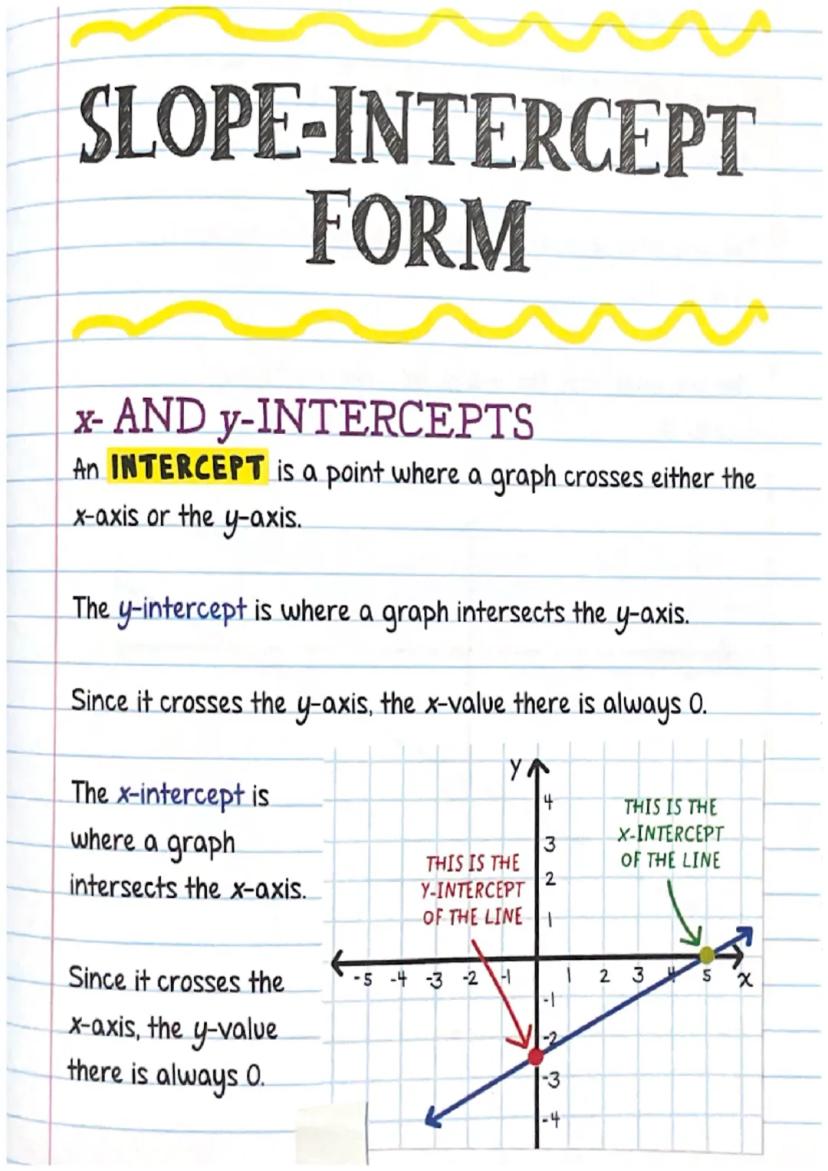 SLOPE-INTERCEPT
FORM
x- AND y-INTERCEPTS
An INTERCEPT is a point where a graph crosses either the
x-axis or the y-axis.
The y-intercept is where a graph intersects the y-axis.
Since it crosses the y-axis, the x-value there is always 0.
The x-intercept is
where a graph
intersects the x-axis.
Since it crosses the
x-axis, the y-value
there is always 0.
y
4
3
2
1
THIS IS THE
X-INTERCEPT
OF THE LINE
THIS IS THE
Y-INTERCEPT
OF THE LINE
-5 -4 -3 -2 -1 1 2 3 4 5 x
-1
-2
-3
-4